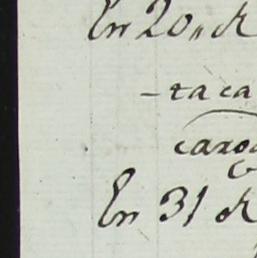 En 20 „ de
-taca
caxo
En 31 de